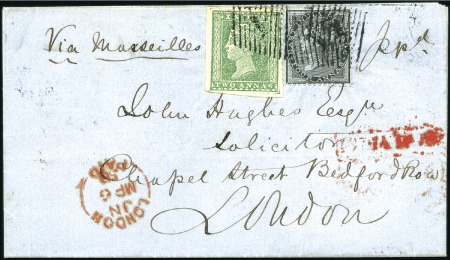 Via Marseilles
ppd
TWO ANNAS
John Hughes Esqr
Solicitor
Chapel Street Bedford Row
London
LONDON
PAID
JN